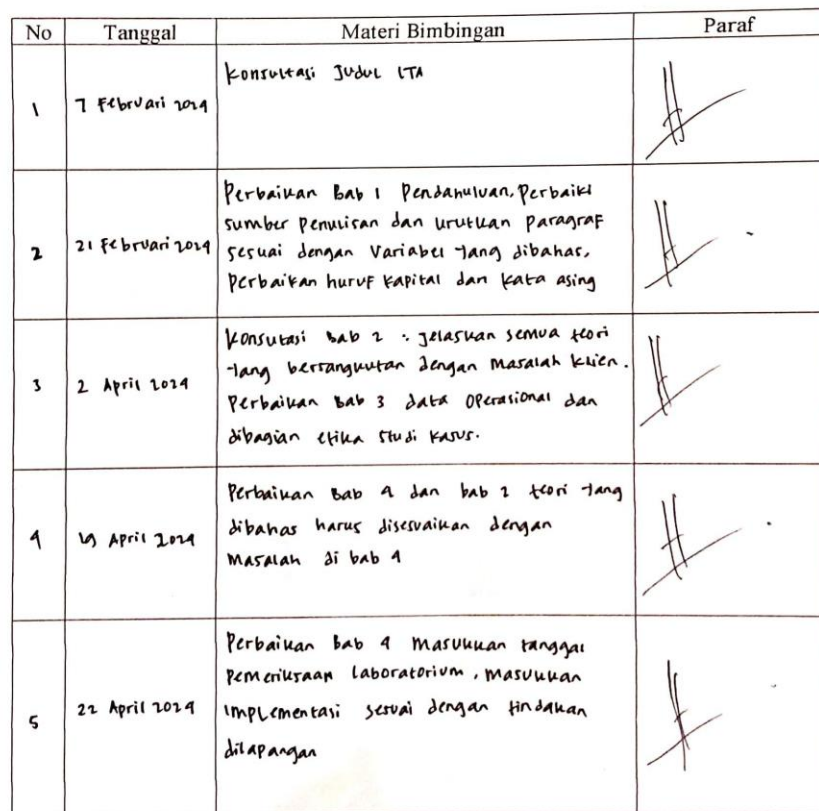 No Tanggal Materi Bimbingan Paraf
1 7 Februari 2024 Konsultasi Judul LTA
Perbaikan Bab 1 Pendahuluan, Perbaiki
sumber penulisan dan urutkan paragraf
2 21 Februari 2024 sesuai dengan Variabel yang dibahas,
perbaikan huruf kapital dan kata asing
Konsutasi Bab 2 : jelaskan semua teori
yang bersangkutan dengan masalah klien.
3 2 April 2024 Perbaikan Bab 3 data operasional dan
dibagian etika studi kasus.
Perbaikan Bab 4 dan bab 2 teori yang
4 19 April 2024 dibahas harus disesuaikan dengan
Masalah di bab 4
Perbaikan Bab 4 masukkan tanggal
pemeriksaan laboratorium, masukkan
5 22 April 2024 implementasi sesuai dengan tindakan
dilapangan